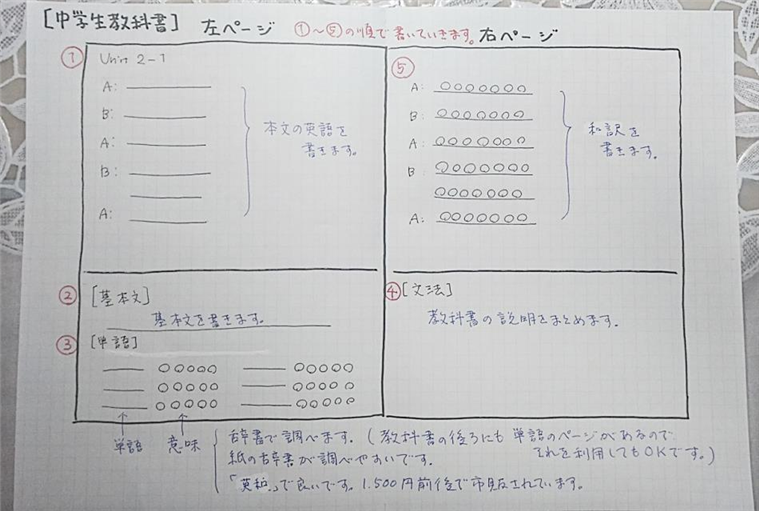 [中学生教科書] 左ページ ①～⑤の順で書いていきます。 右ページ
① Unit 2-1
A:
B:
A:
B:
A:
本文の英語を
書きます。
② [基本文]
基本文を書きます。
③ [単語]
○○○○○ ○○○○○
○○○○○ ○○○○○
○○○○○ ○○○○○
単語 意味
⑤
A: ○○○○○○○
B: ○○○○○○○
A: ○○○○○○○
B ○○○○○○○
○○○○○○○
A: ○○○○○○○
和訳を
書きます。
④ [文法]
教科書の説明をまとめます。
辞書で調べます。(教科書の後ろにも単語のページがあるので
それを利用してもOKです。)
紙の辞書が調べやすいです。
「英和」で良いです。1.500円前後で市販されています。